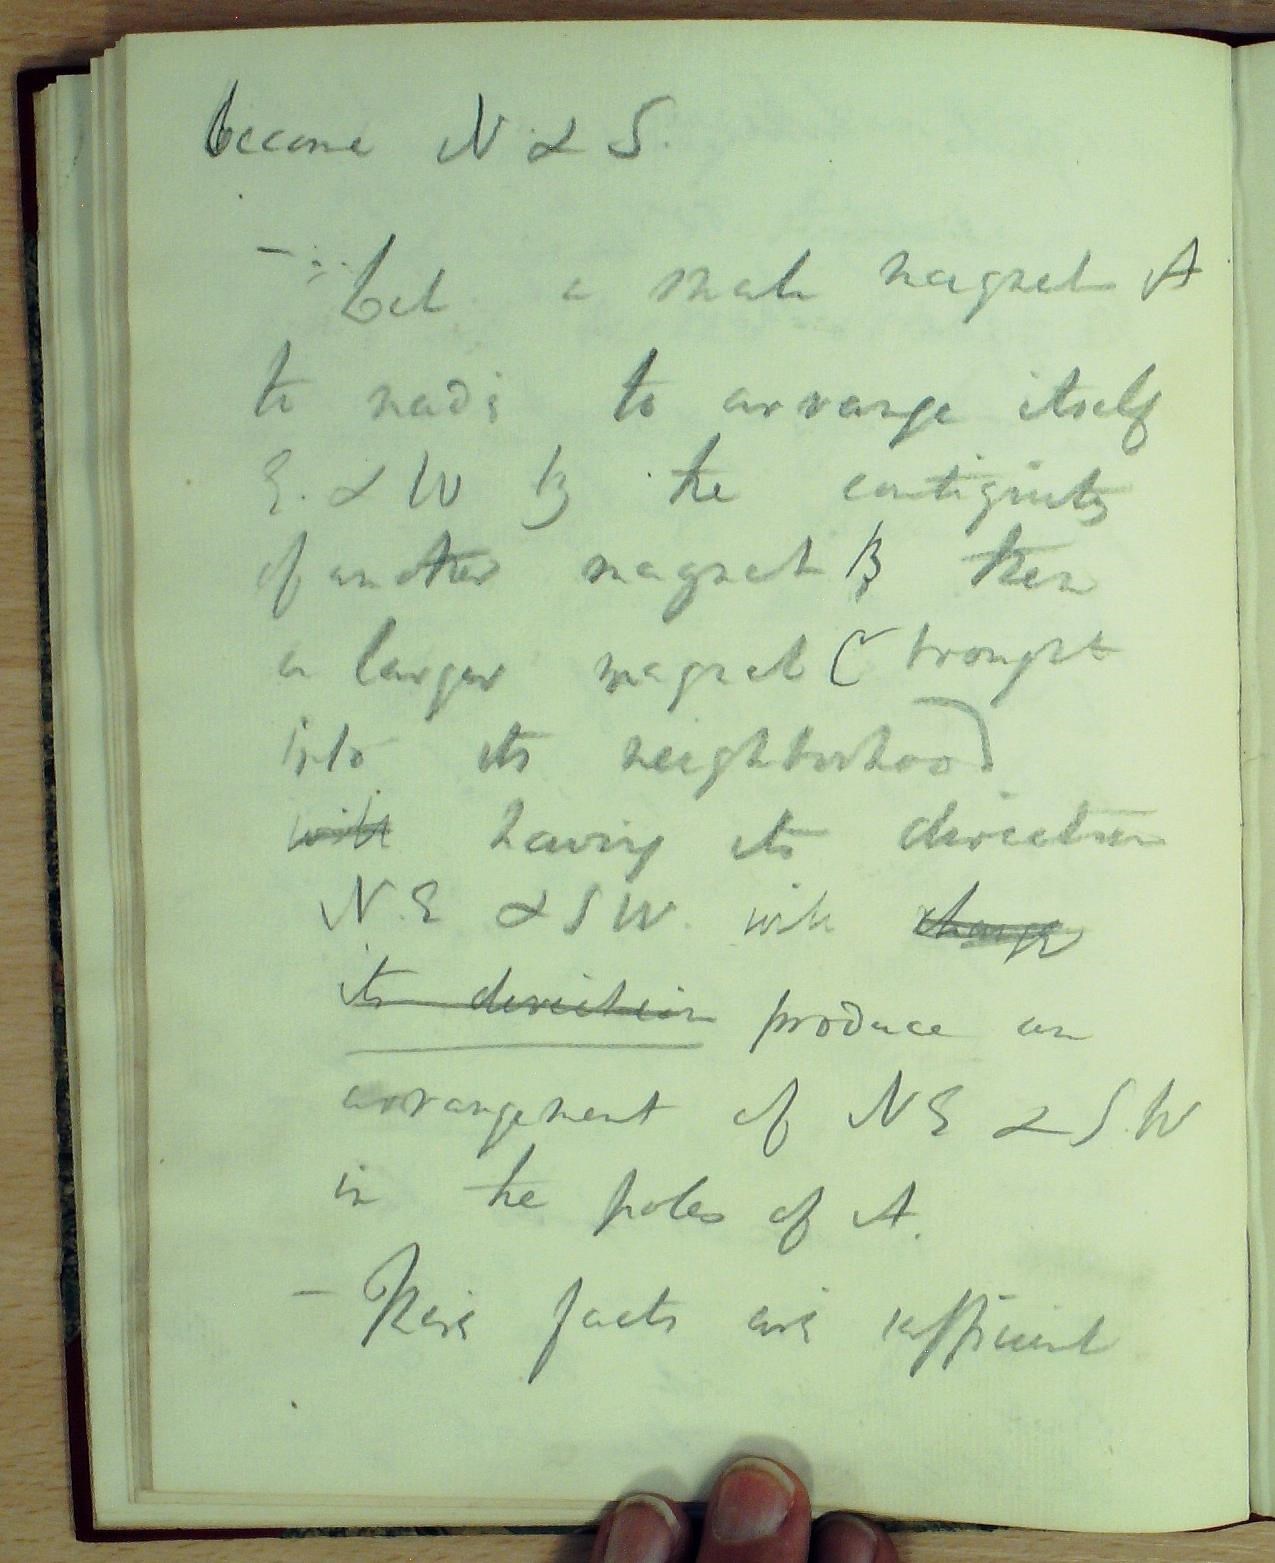 become N & S.
- Let a small magnet A
be made to arrange itself
E. & W by the contiguity
of another magnet B then
a larger magnet C brought
into its neighborhood
will having its direction
N.E & S W. will change
its direction produce an
arrangement of N E & S. W
in the poles of A.
- These facts are sufficient